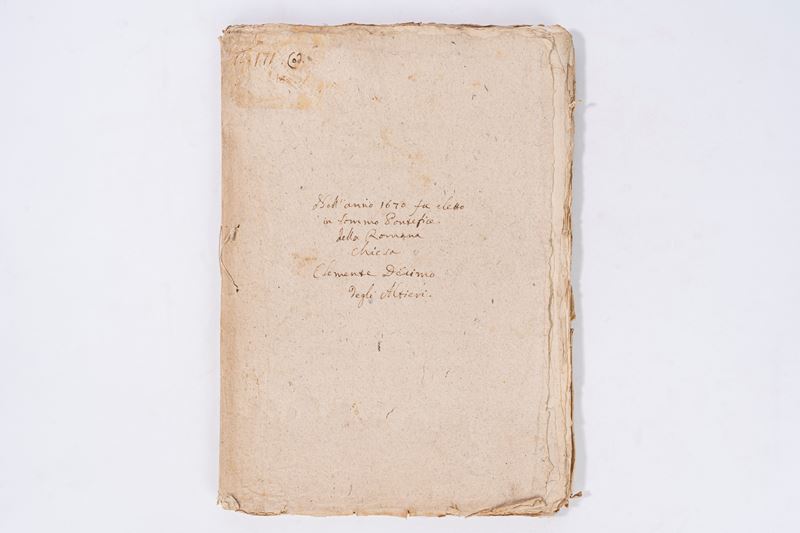 171 Cod.
Dell'anno 1670 fu eletto
in Sommo Pontefice
della Romana
Chiesa
Clemente Decimo
degli Altieri.